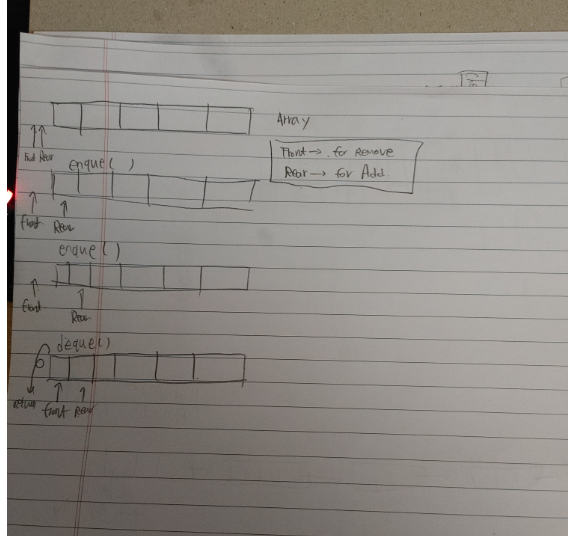 Array
Front → for Remove
Rear → for Add.
Rear
enque( )
Front Rear
enque( )
Front
Rear
deque( )
return Front Rear